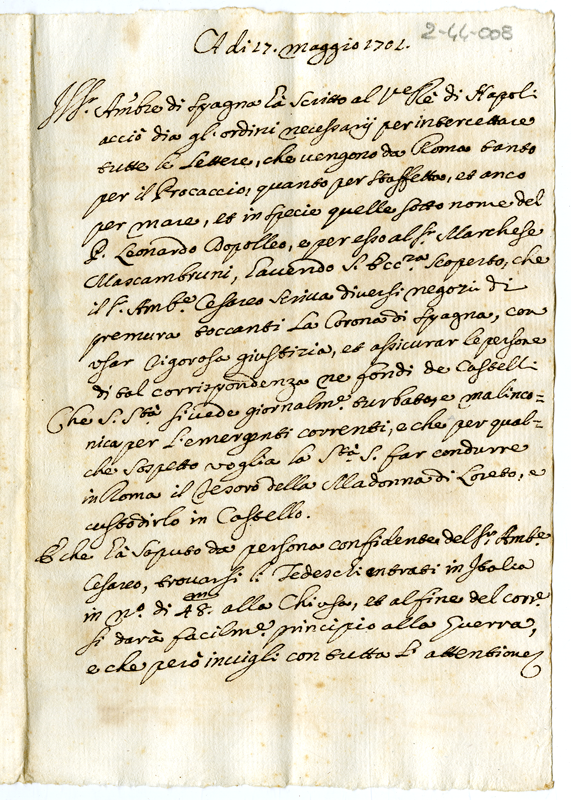 2-44-008
A di 17. Maggio 1701.
Il Sr. Ambre di Spagna hà scritto al Vice Rè di Napoli
acciò dia gl'ordini necessarij per intercettare
tutte le Lettere, che vengono da Roma tanto
per il Procaccio, quanto per Staffetta, et anco
per mare, et in specie quelle sotto nome del
P. Leonardo Dopolleo, e per esso al Sr. Marchese
Mascambruni, havendo S. Eccza scoperto, che
il Sr. Ambe. Cesareo scriva diversi negozii di
premura toccanti la Corona di Spagna, con
usar rigorosa giustizia, et assicurar le persone
di tal corrispondenza ne fondi de Castelli
Che S. Stà si vede giornalme. turbata, e malinco=
nica per l'emergenti correnti, e che per qual=
che sospetto voglia la Stà S. far condurre
in Roma il Tesoro della Madonna di Loreto, e
custodirlo in Castello.
E che hà saputo da persona confidente del Sr. Ambe.
Cesareo, trovarsi li Tedeschi entrati in Italia
in no. di 48m alla Chiusa, et al fine del corre.
si darà facilme. principio alla Guerra,
e che però invigli con tutta l'attentione